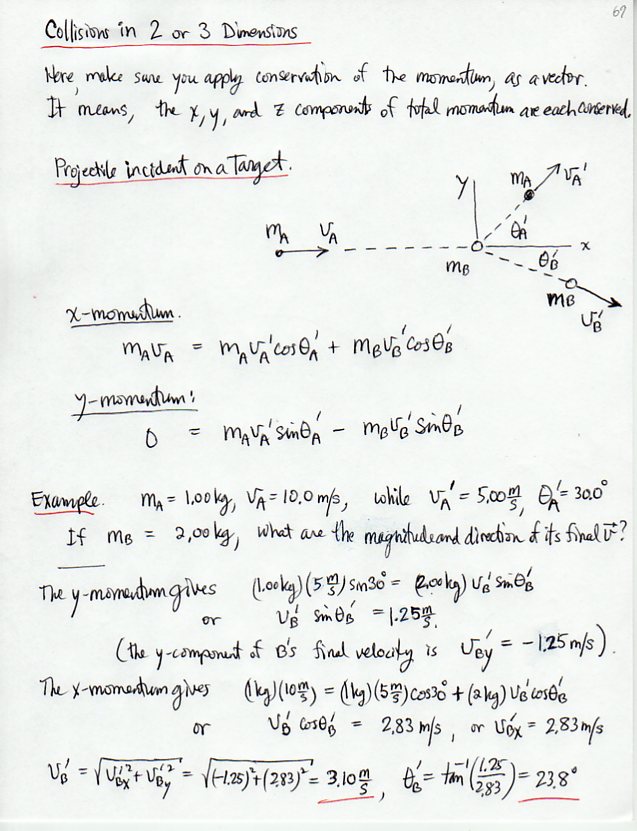 69
Collisions in 2 or 3 Dimensions
Here, make sure you apply conservation of the momentum, as a vector.
It means, the x, y, and z components of total momentum are each conserved.
Projectile incident on a Target.
y mA vA'
mA vA θA' x
mB θB'
mB
vB'
x-momentum.
mAvA = mAvA'cosθA' + mBvB'cosθB'
y-momentum:
0 = mAvA'sinθA' − mBvB'sinθB'
Example. mA = 1.00kg, vA = 10.0 m/s, while vA' = 5.00 m/s, θA' = 30.0°
If mB = 2.00kg, what are the magnitude and direction of its final v⃗?
The y-momentum gives (1.00kg)(5 m/s) sin30° = (2.00kg) vB' sinθB'
or vB' sinθB' = 1.25 m/s.
(the y-component of B's final velocity is vBy' = −1.25 m/s).
The x-momentum gives (1kg)(10 m/s) = (1kg)(5 m/s)cos30° + (2kg) vB'cosθB'
or vB' cosθB' = 2.83 m/s, or vBx' = 2.83 m/s
vB' = √(vBx'² + vBy'²) = √((−1.25)² + (2.83)²) = 3.10 m/s, θB' = tan⁻¹(1.25/2.83) = 23.8°